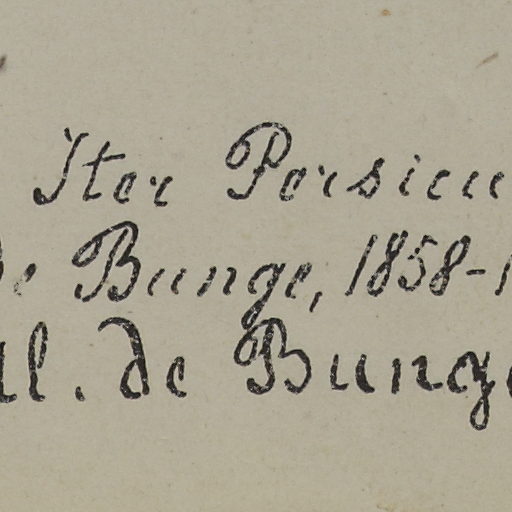 Iter Persicu
de Bunge, 1858-1
al. de Bunge